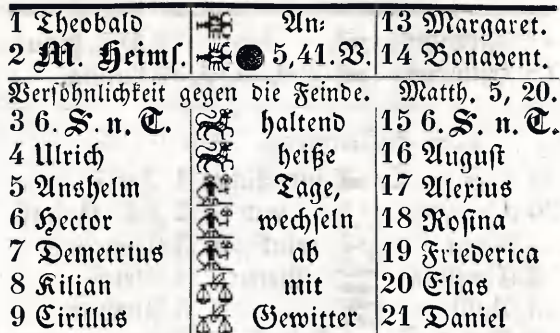 1 Theobald An= 13 Margaret.
2 M. Heimſ. 5,41.V. 14 Bonavent.
Verſöhnlichkeit gegen die Feinde. Matth. 5, 20.
3 6. S. n. T. haltend 15 6. S. n. T.
4 Ulrich heiße 16 Auguſt
5 Anshelm Tage, 17 Alexius
6 Hector wechſeln 18 Roſina
7 Demetrius ab 19 Friederica
8 Kilian mit 20 Elias
9 Cirillus Gewitter 21 Daniel